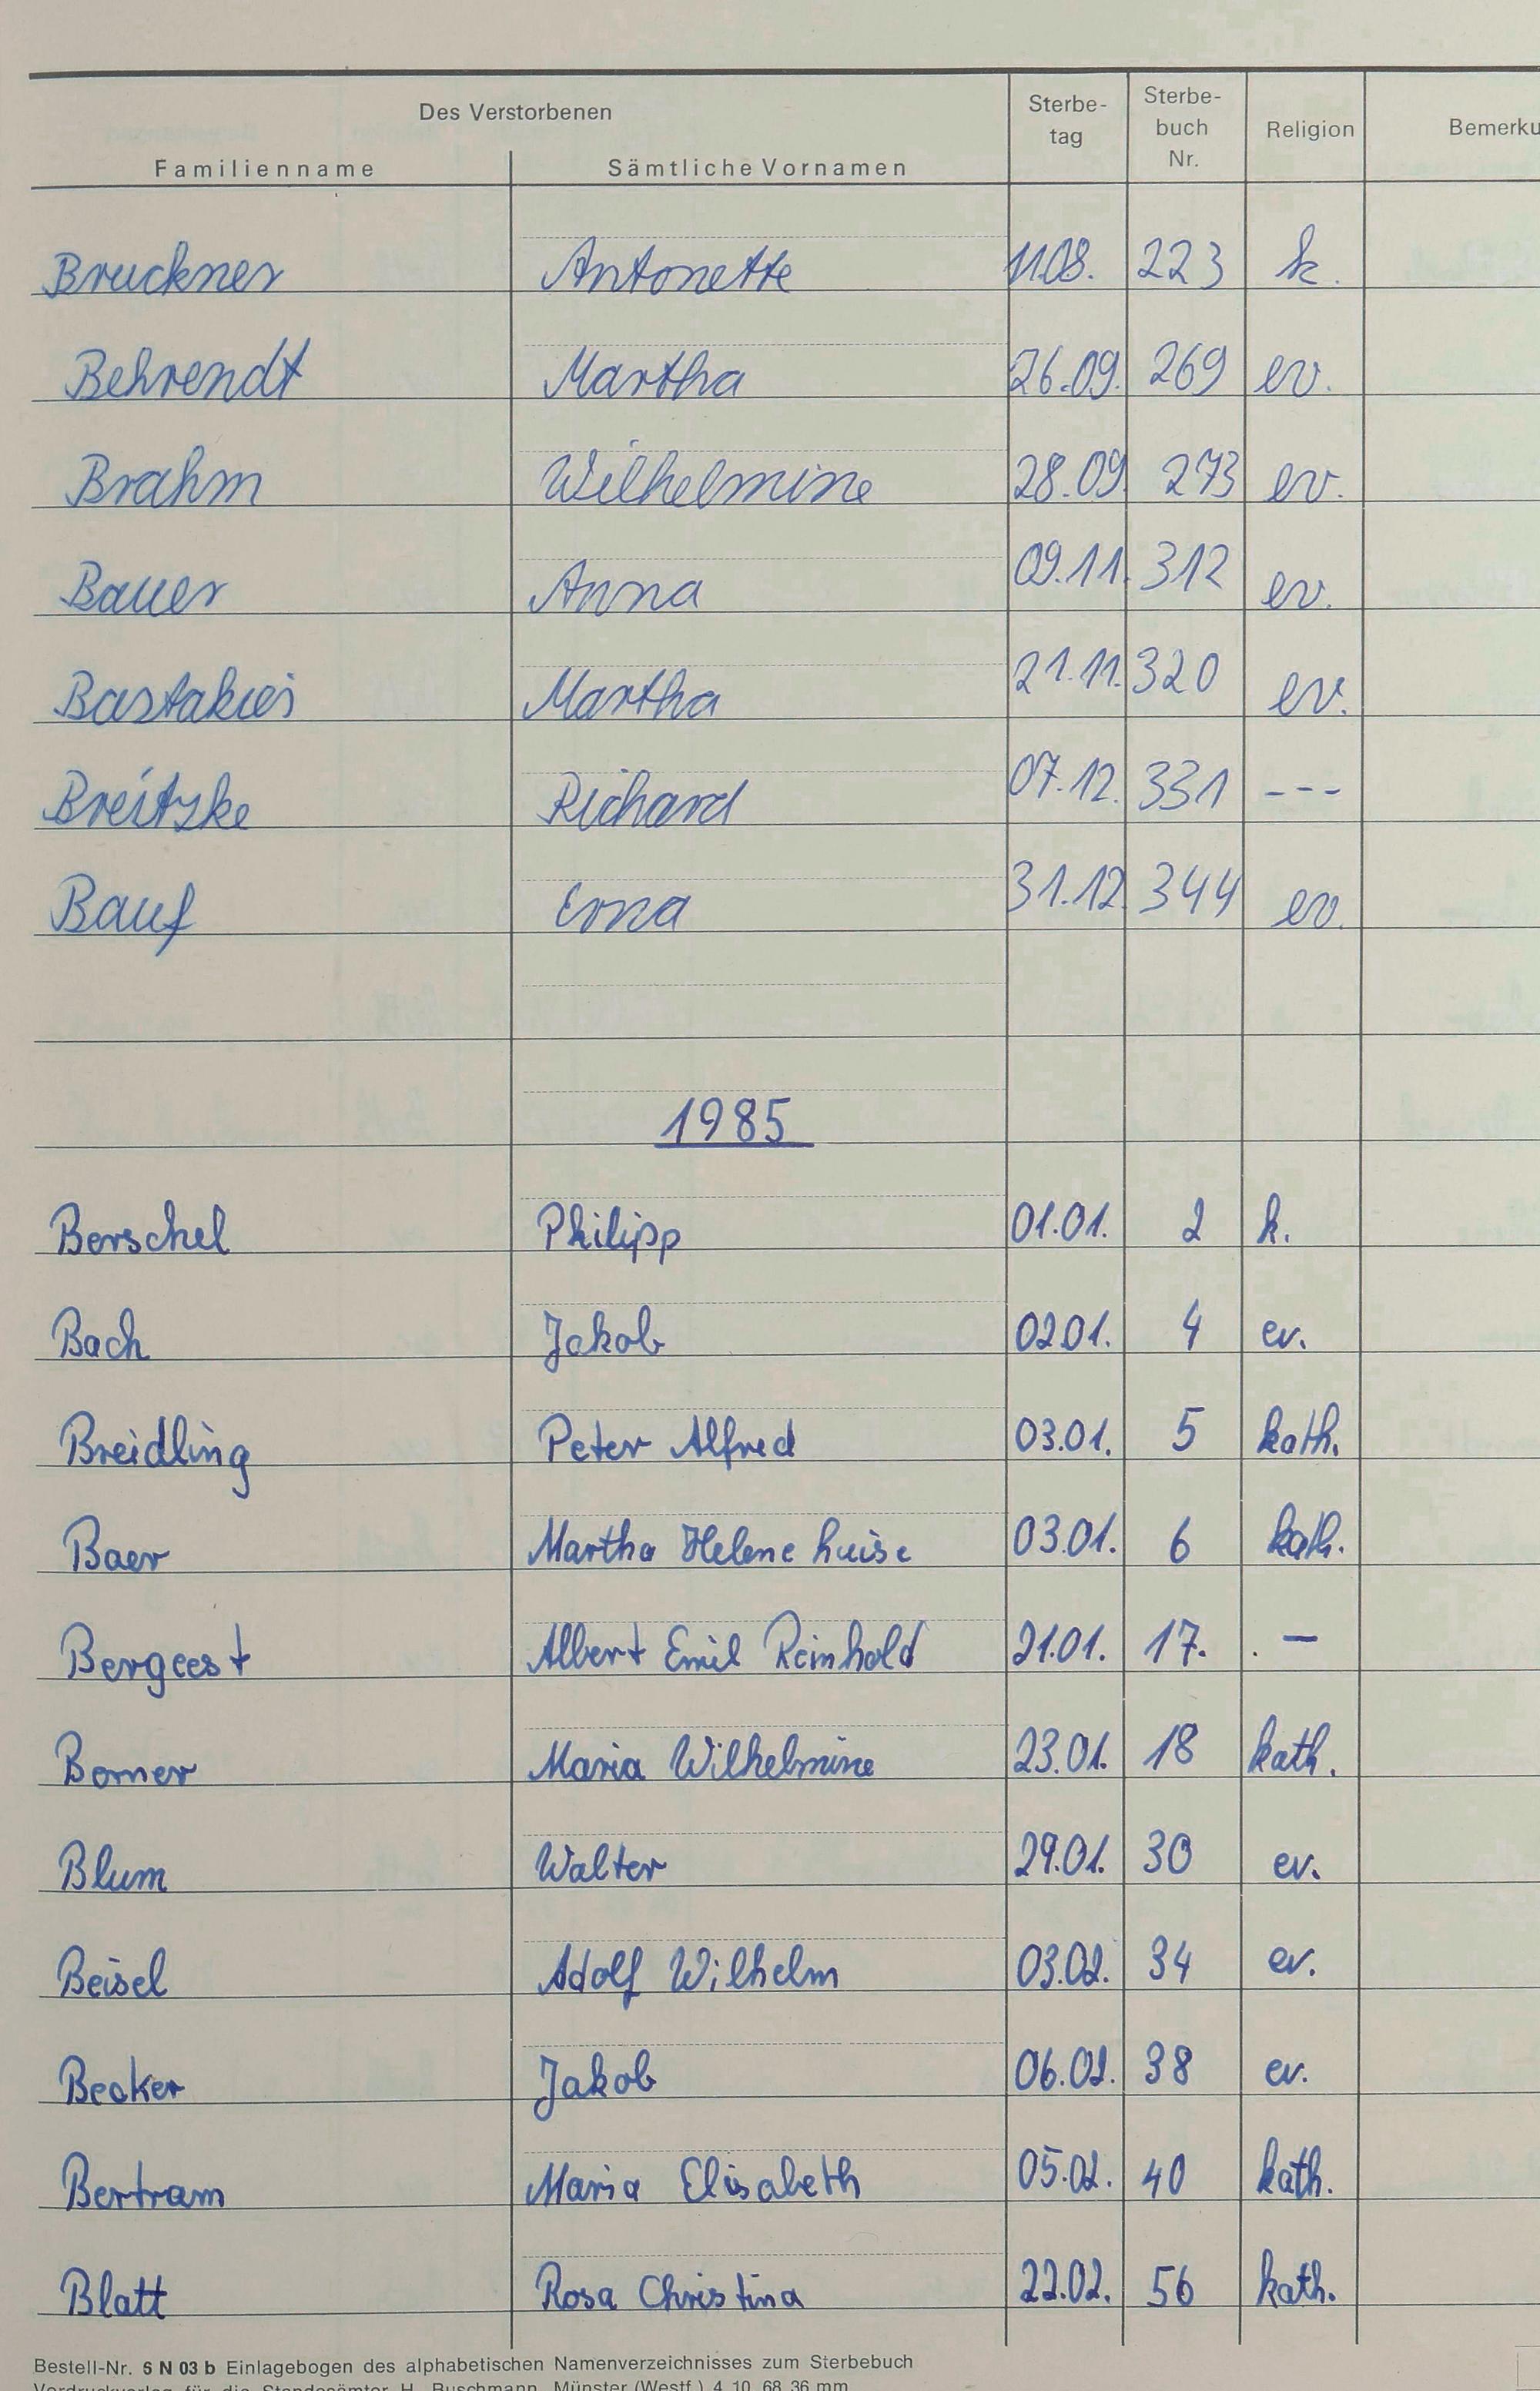 Des Verstorbenen
Familienname Sämtliche Vornamen Sterbe-tag Sterbe-buch Nr. Religion Bemerku
Bruckner Antonette 11.08. 223 k.
Behrendt Martha 26.09. 269 ev.
Brahm Wilhelmine 28.09. 273 ev.
Bauer Anna 09.11. 312 ev.
Martha 21.11. 320 ev.
Breitzke Richard 07.12. 331 ---
Bauf Erna 31.12. 344 ev.
1985
Berschel Philipp 01.01. 2 k.
Bach Jakob 02.01. 4 ev.
Breidling Peter Alfred 03.01. 5 kath.
Baer Martha Helene Luise 03.01. 6 kath.
Bergeest Albert Emil Reinhold 21.01. 17. . –
Maria Wilhelmine 23.01. 18 kath.
Blum Walter 29.01. 30 ev.
Beisel Adolf Wilhelm 03.02. 34 ev.
Becker Jakob 06.02. 38 ev.
Bertram Maria Elisabeth 05.02. 40 kath.
Blatt Rosa Christina 22.02. 56 kath.
Bestell-Nr. 6 N 03 b Einlagebogen des alphabetischen Namenverzeichnisses zum Sterbebuch
Vordruckverlag für die Standesämter H. Buschmann, Münster (Westf.) 4 10 68 36 mm